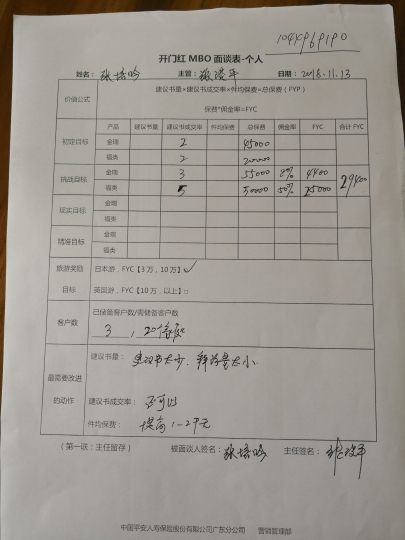 1044969190
开门红 MBO 面谈表-个人
姓名： 张培吟 主管： 日期：2018.11.13
价值公式 建议书量×建议书成交率×件均保费=总保费（FYP）
保费*佣金率=FYC
产品 建议书量 建议书成交率 件均保费 总保费 佣金率 FYC 合计 FYC
初定目标 金瑞 2 45000
福类 2 20000
挑战目标 金瑞 3 55000 8% 4400 29400
福类 5 50000 50% 25000
现实目标 金瑞
福类
精准目标 金瑞
福类
旅游奖励 日本游，FYC【3 万，10 万】✓
目标 英国游，FYC【10 万，以上】□
客户数 已储备客户数/需储备客户数
3 , 20
最需要改进的动作 建议书量： 建议书太少、拜访量太小
建议书成交率： 还可以
件均保费： 提高1-2千元
（第一联：主任留存） 被面谈人签名： 张培吟 主任签名：
中国平安人寿保险股份有限公司广东分公司 营销管理部